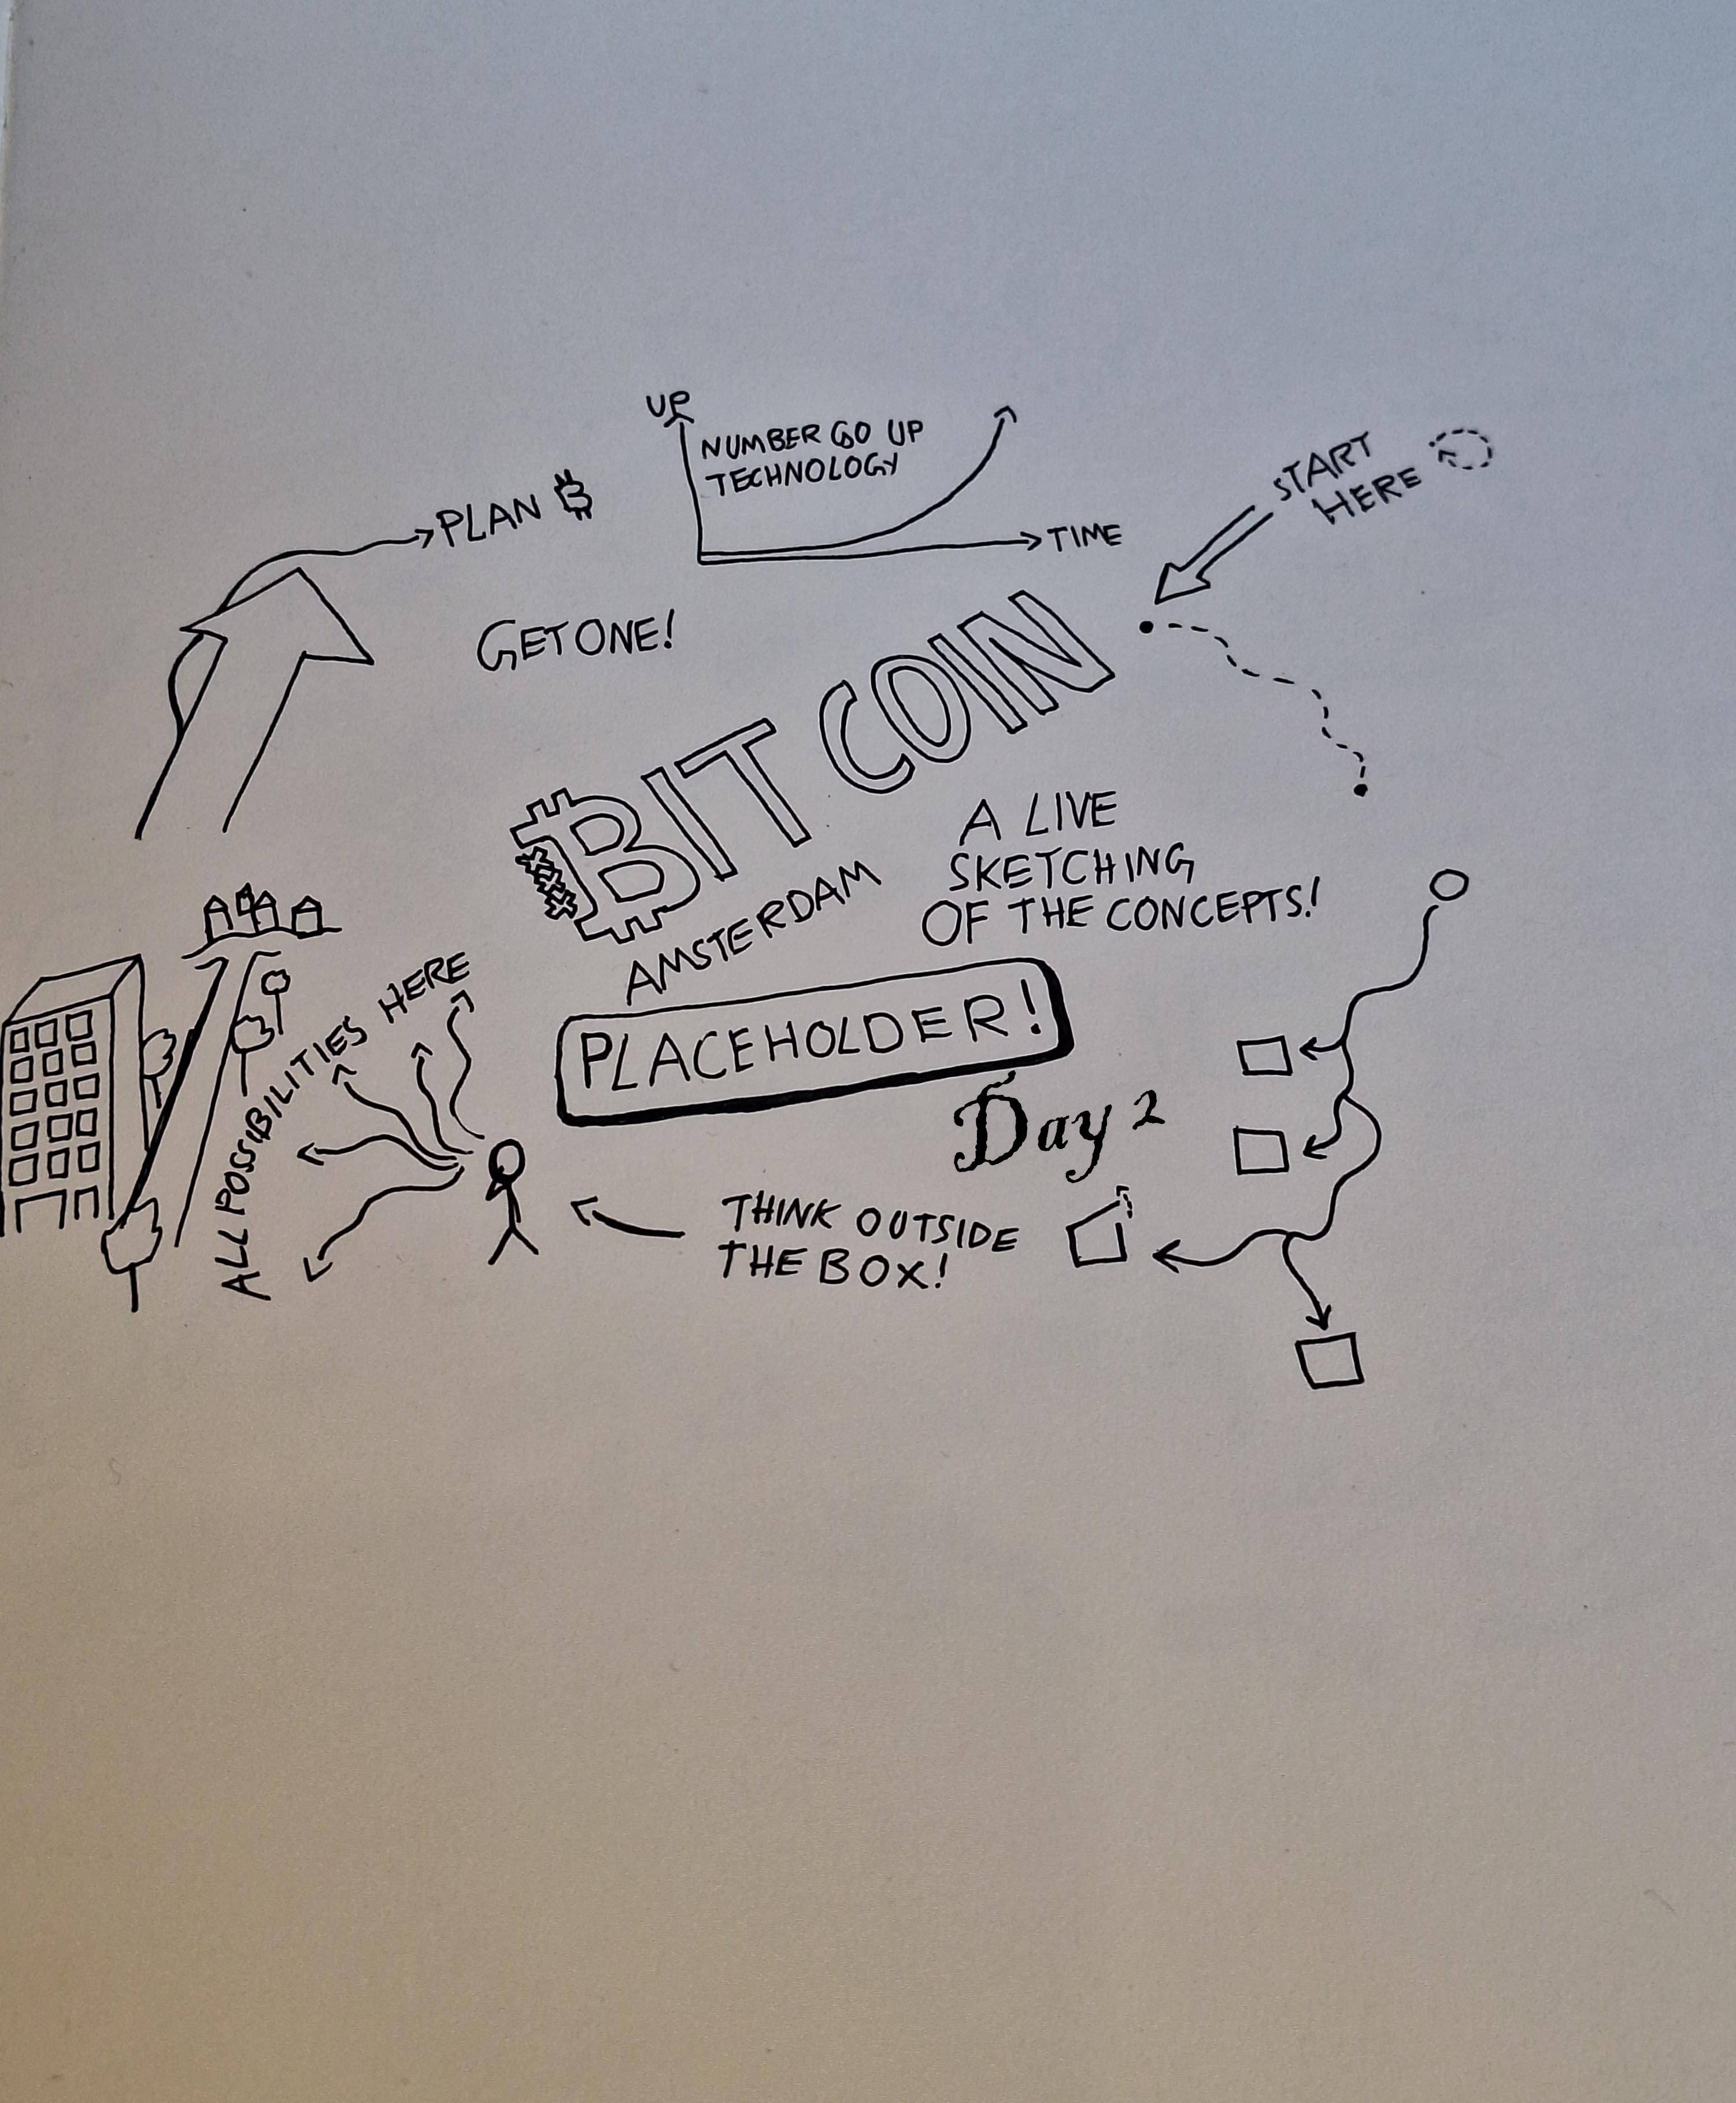 UP
NUMBER GO UP
TECHNOLOGY
TIME
START
HERE
PLAN ₿
GET ONE!
BITCOIN
AMSTERDAM
A LIVE
SKETCHING
OF THE CONCEPTS!
PLACEHOLDER!
Day 2
ALL POSSIBILITIES HERE
THINK OUTSIDE
THE BOX!